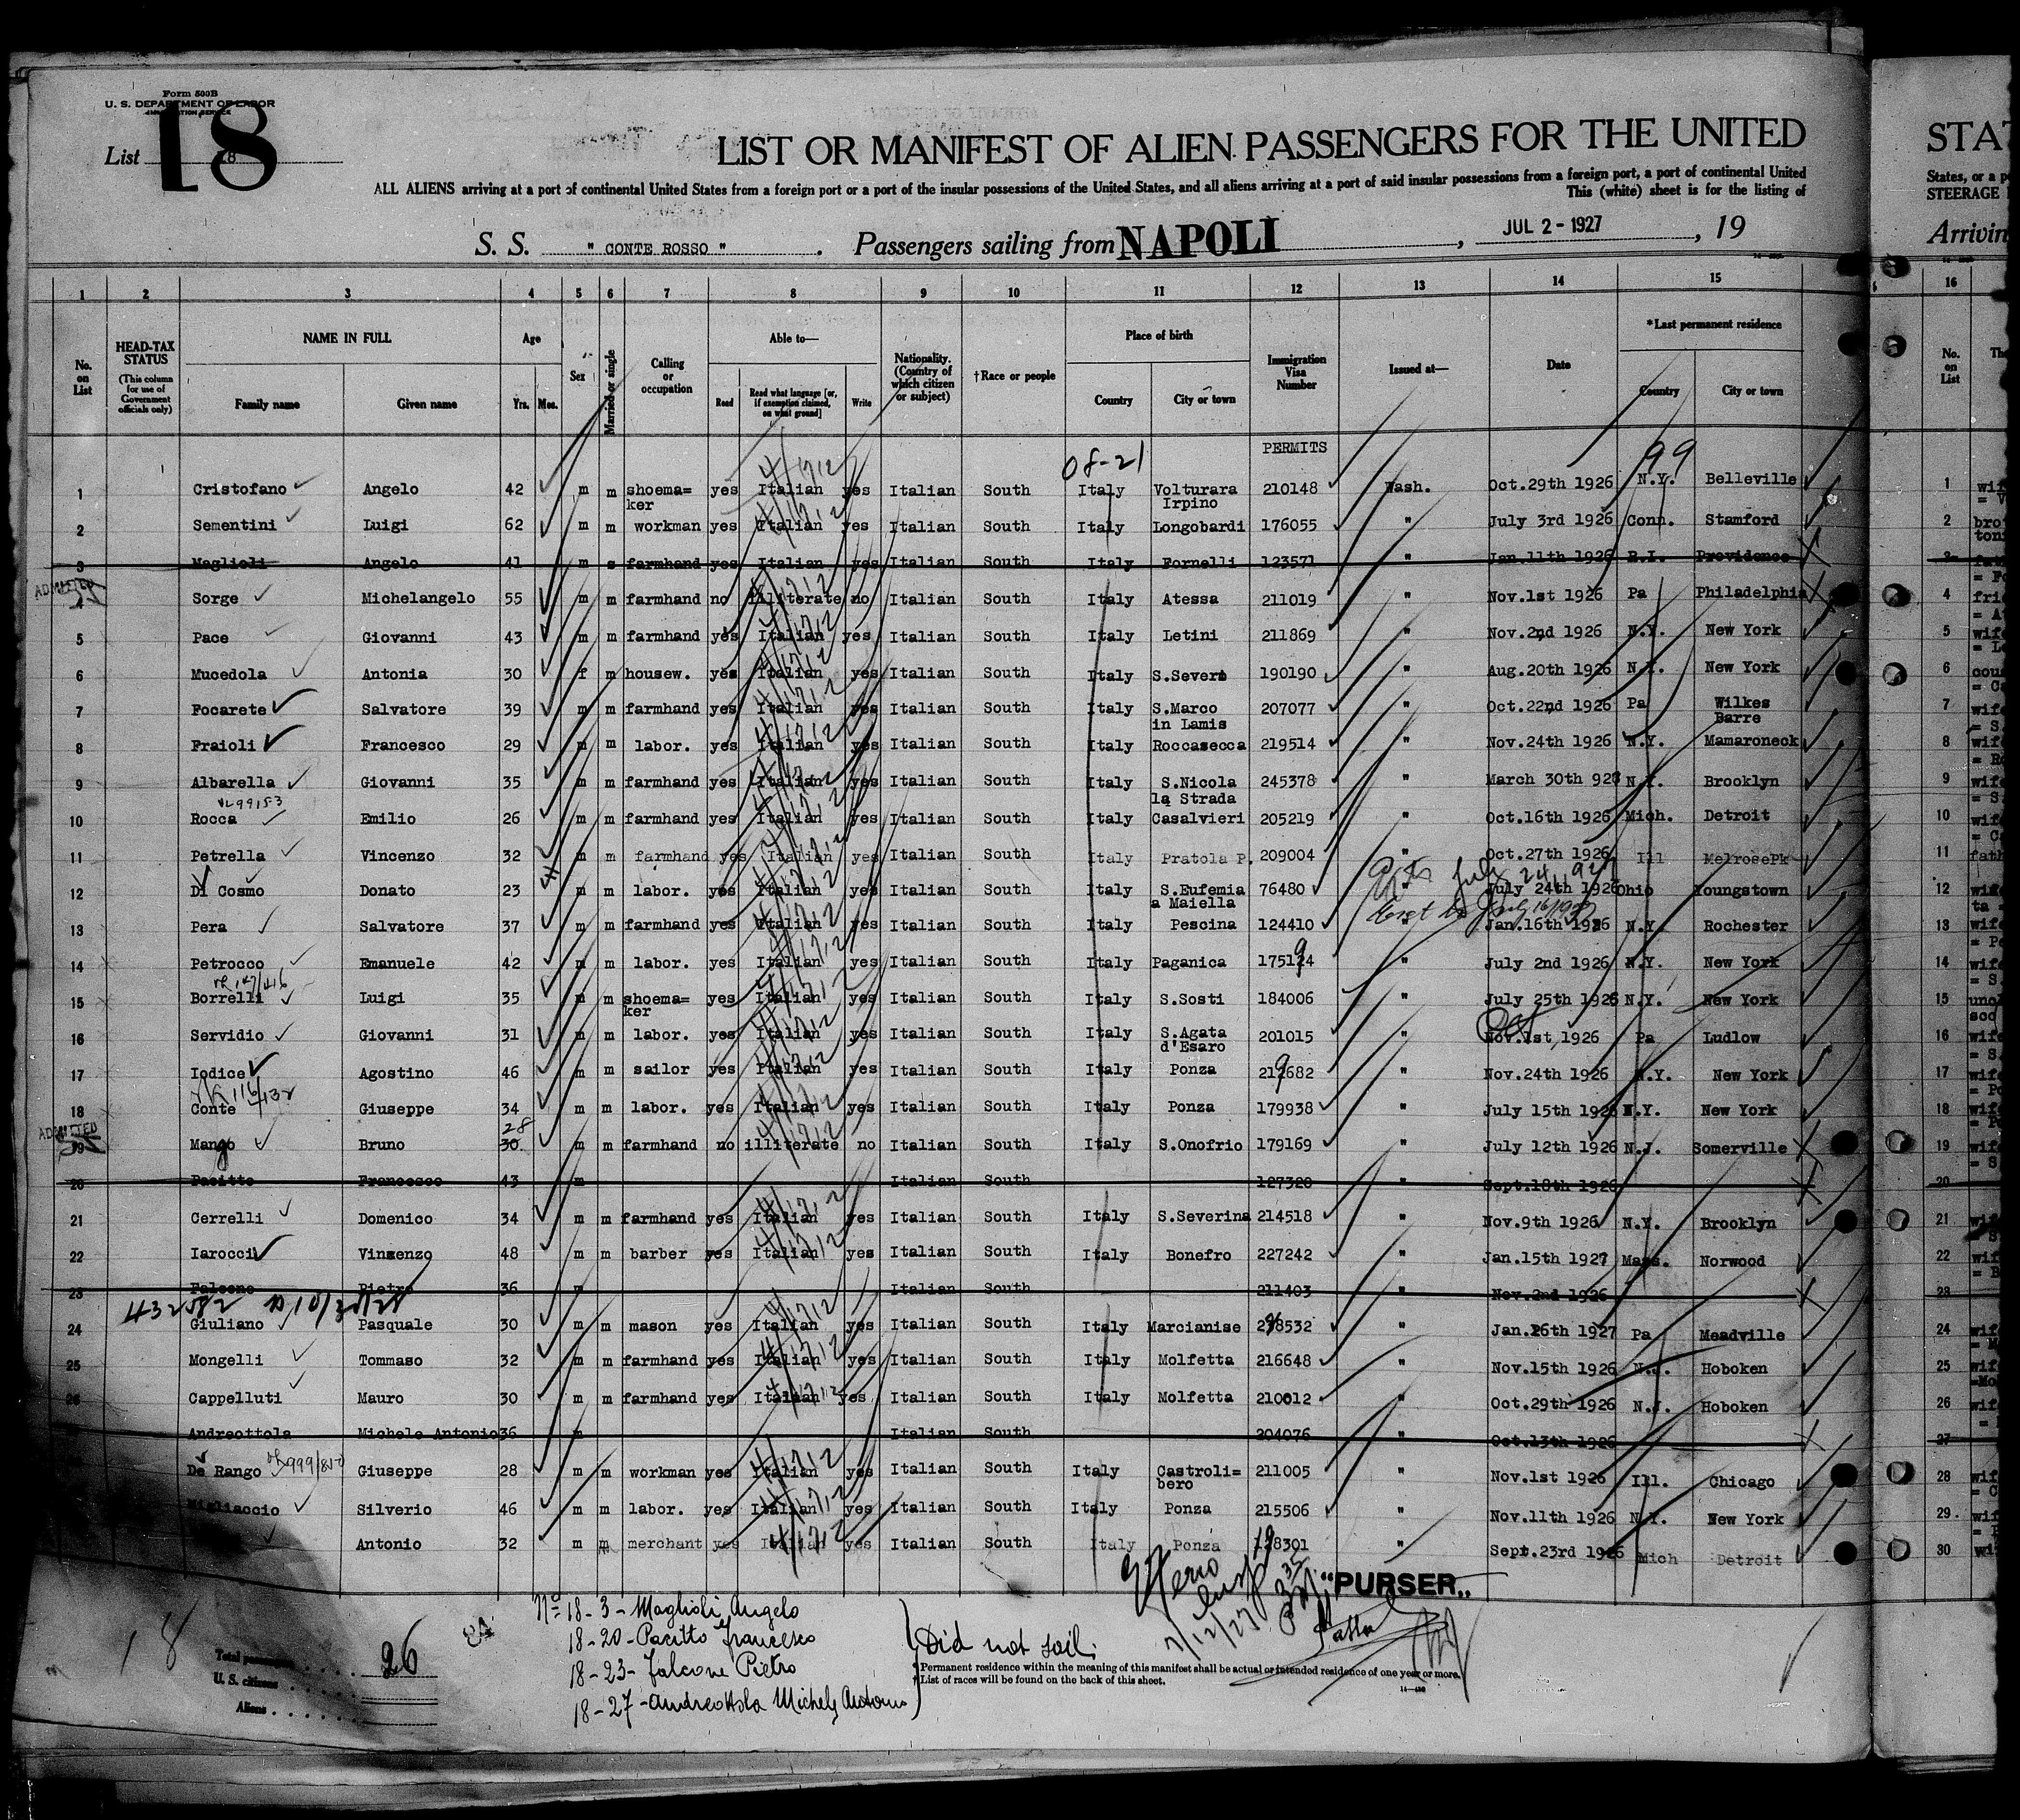 Form 500B
U. S. DEPARTMENT OF LABOR
IMMIGRATION SERVICE
List 18
18
LIST OR MANIFEST OF ALIEN PASSENGERS FOR THE UNITED
ALL ALIENS arriving at a port of continental United States from a foreign port or a port of the insular possessions of the United States, and all aliens arriving at a port of said insular possessions from a foreign port, a port of continental United
This (white) sheet is for the listing of
S. S. " CONTE ROSSO " . Passengers sailing from NAPOLI , JUL 2 - 1927 , 19
1 2 3 4 5 6 7 8 9 10 11 12 13 14 15
No. on List
HEAD-TAX STATUS
(This column for use of Government officials only)
NAME IN FULL
Family name Given name
Age
Yrs. Mos.
Sex
Married or single
Calling or occupation
Able to—
Read Read what language [or, if exemption claimed, on what ground] Write
Nationality. (Country of which citizen or subject)
†Race or people
Place of birth
Country City or town
Immigration Visa Number
Issued at—
Date
*Last permanent residence
Country City or town
PERMITS
08-21 99
1 Cristofano Angelo 42 m m shoema= ker yes Italian yes Italian South Italy Volturara Irpino 210148 Wash. Oct.29th 1926 N.Y. Belleville
2 Sementini Luigi 62 m m workman yes Italian yes Italian South Italy Longobardi 176055 " July 3rd 1926 Conn. Stamford
3 Maglioli Angelo 41 m s farmhand yes Italian yes Italian South Italy Fornelli 123571 " Jan.11th 1926 R.I. Providence
ADMITTED
4 Sorge Michelangelo 55 m m farmhand no illiterate no Italian South Italy Atessa 211019 " Nov.1st 1926 Pa Philadelphia
5 Pace Giovanni 43 m m farmhand yes Italian yes Italian South Italy Letini 211869 " Nov.2nd 1926 N.Y. New York
6 Mucedola Antonia 30 f m housew. yes Italian yes Italian South Italy S.Severo 190190 " Aug.20th 1926 N.Y. New York
7 Focarete Salvatore 39 m m farmhand yes Italian yes Italian South Italy S.Marco in Lamis 207077 " Oct.22nd 1926 Pa Wilkes Barre
8 Fraioli Francesco 29 m m labor. yes Italian yes Italian South Italy Roccasecca 219514 " Nov.24th 1926 N.Y. Mamaroneck
9 Albarella Giovanni 35 m m farmhand yes Italian yes Italian South Italy S.Nicola la Strada 245378 " March 30th 928 N.Y. Brooklyn
10 Rocca Emilio 26 m m farmhand yes Italian yes Italian South Italy Casalvieri 205219 " Oct.16th 1926 Mich. Detroit
11 Petrella Vincenzo 32 m m farmhand yes Italian yes Italian South Italy Pratola P. 209004 " Oct.27th 1926 Ill MelrosePk
12 Di Cosmo Donato 23 m m labor. yes Italian yes Italian South Italy S.Eufemia a Maiella 76480 " July 24th 1926 Ohio Youngstown
13 Pera Salvatore 37 m m farmhand yes Italian yes Italian South Italy Pescina 124410 " Jan.16th 1926 N.Y. Rochester
14 Petrocco Emanuele 42 m m labor. yes Italian yes Italian South Italy Paganica 175194 " July 2nd 1926 N.Y. New York
15 Borrelli Luigi 35 m m shoema= ker yes Italian yes Italian South Italy S.Sosti 184006 " July 25th 1926 N.Y. New York
16 Servidio Giovanni 31 m m labor. yes Italian yes Italian South Italy S.Agata d'Esaro 201015 " Oct Nov.1st 1926 Pa Ludlow
17 Iodice Agostino 46 m m sailor yes Italian yes Italian South Italy Ponza 219682 " Nov.24th 1926 N.Y. New York
18 Conte Giuseppe 34 m m labor. yes Italian yes Italian South Italy Ponza 179938 " July 15th 1926 N.Y. New York
ADMITTED
28
19 Mango Bruno 30 m m farmhand no illiterate no Italian South Italy S.Onofrio 179169 " July 12th 1926 N.J. Somerville
20 Pacitto Francesco 43 m Italian South 127320 " Sept.18th 1926
21 Cerrelli Domenico 34 m m farmhand yes Italian yes Italian South Italy S.Severina 214518 " Nov.9th 1926 N.Y. Brooklyn
22 Iarocci Vinzenzo 48 m m barber yes Italian yes Italian South Italy Bonefro 227242 " Jan.15th 1927 Mass. Norwood
23 Falcone Pietro 36 m Italian South 211403 " Nov.2nd 1926
24 Giuliano Pasquale 30 m m mason yes Italian yes Italian South Italy Marcianise 228532 " Jan.26th 1927 Pa Meadville
25 Mongelli Tommaso 32 m m farmhand yes Italian yes Italian South Italy Molfetta 216648 " Nov.15th 1926 N.J. Hoboken
26 Cappelluti Mauro 30 m m farmhand yes Italian yes Italian South Italy Molfetta 210012 " Oct.29th 1926 N.J. Hoboken
Andreottola Michele Antonio 36 m Italian South 204076 Oct.13th 1926
De Rango Giuseppe 28 m m workman yes Italian yes Italian South Italy Castroli= bero 211005 " Nov.1st 1926 Ill. Chicago
Migliaccio Silverio 46 m m labor. yes Italian yes Italian South Italy Ponza 215506 " Nov.11th 1926 N.Y. New York
Antonio 32 m m merchant yes Italian yes Italian South Italy Ponza 198301 Sept.23rd 1926 Mich Detroit
"PURSER"
No 18-3- Maglioli Angelo
18-20- Pacitto Francesco
18-23- Falcone Pietro
18-27- Andreottola Michele Antonio
Did not sail.
7/12/27
18
Total passengers 26
U. S. citizens
Aliens
* Permanent residence within the meaning of this manifest shall be actual or intended residence of one year or more.
† List of races will be found on the back of this sheet.
STAT
States, or a p
STEERAGE
Arrivin
16
No. on List
1 wif
2 bro
4 fri
5 wif
6 cou
7 wif
8 wif
9 wif
10 wif
11 fath
12 wif
13 wif
14 wif
15 unc
16 wif
17 wif
18 wif
19 wif
20
21 wif
22 wif
23
24 wif
25 wif
26 wif
27
28 wif
29 wif
30 wi